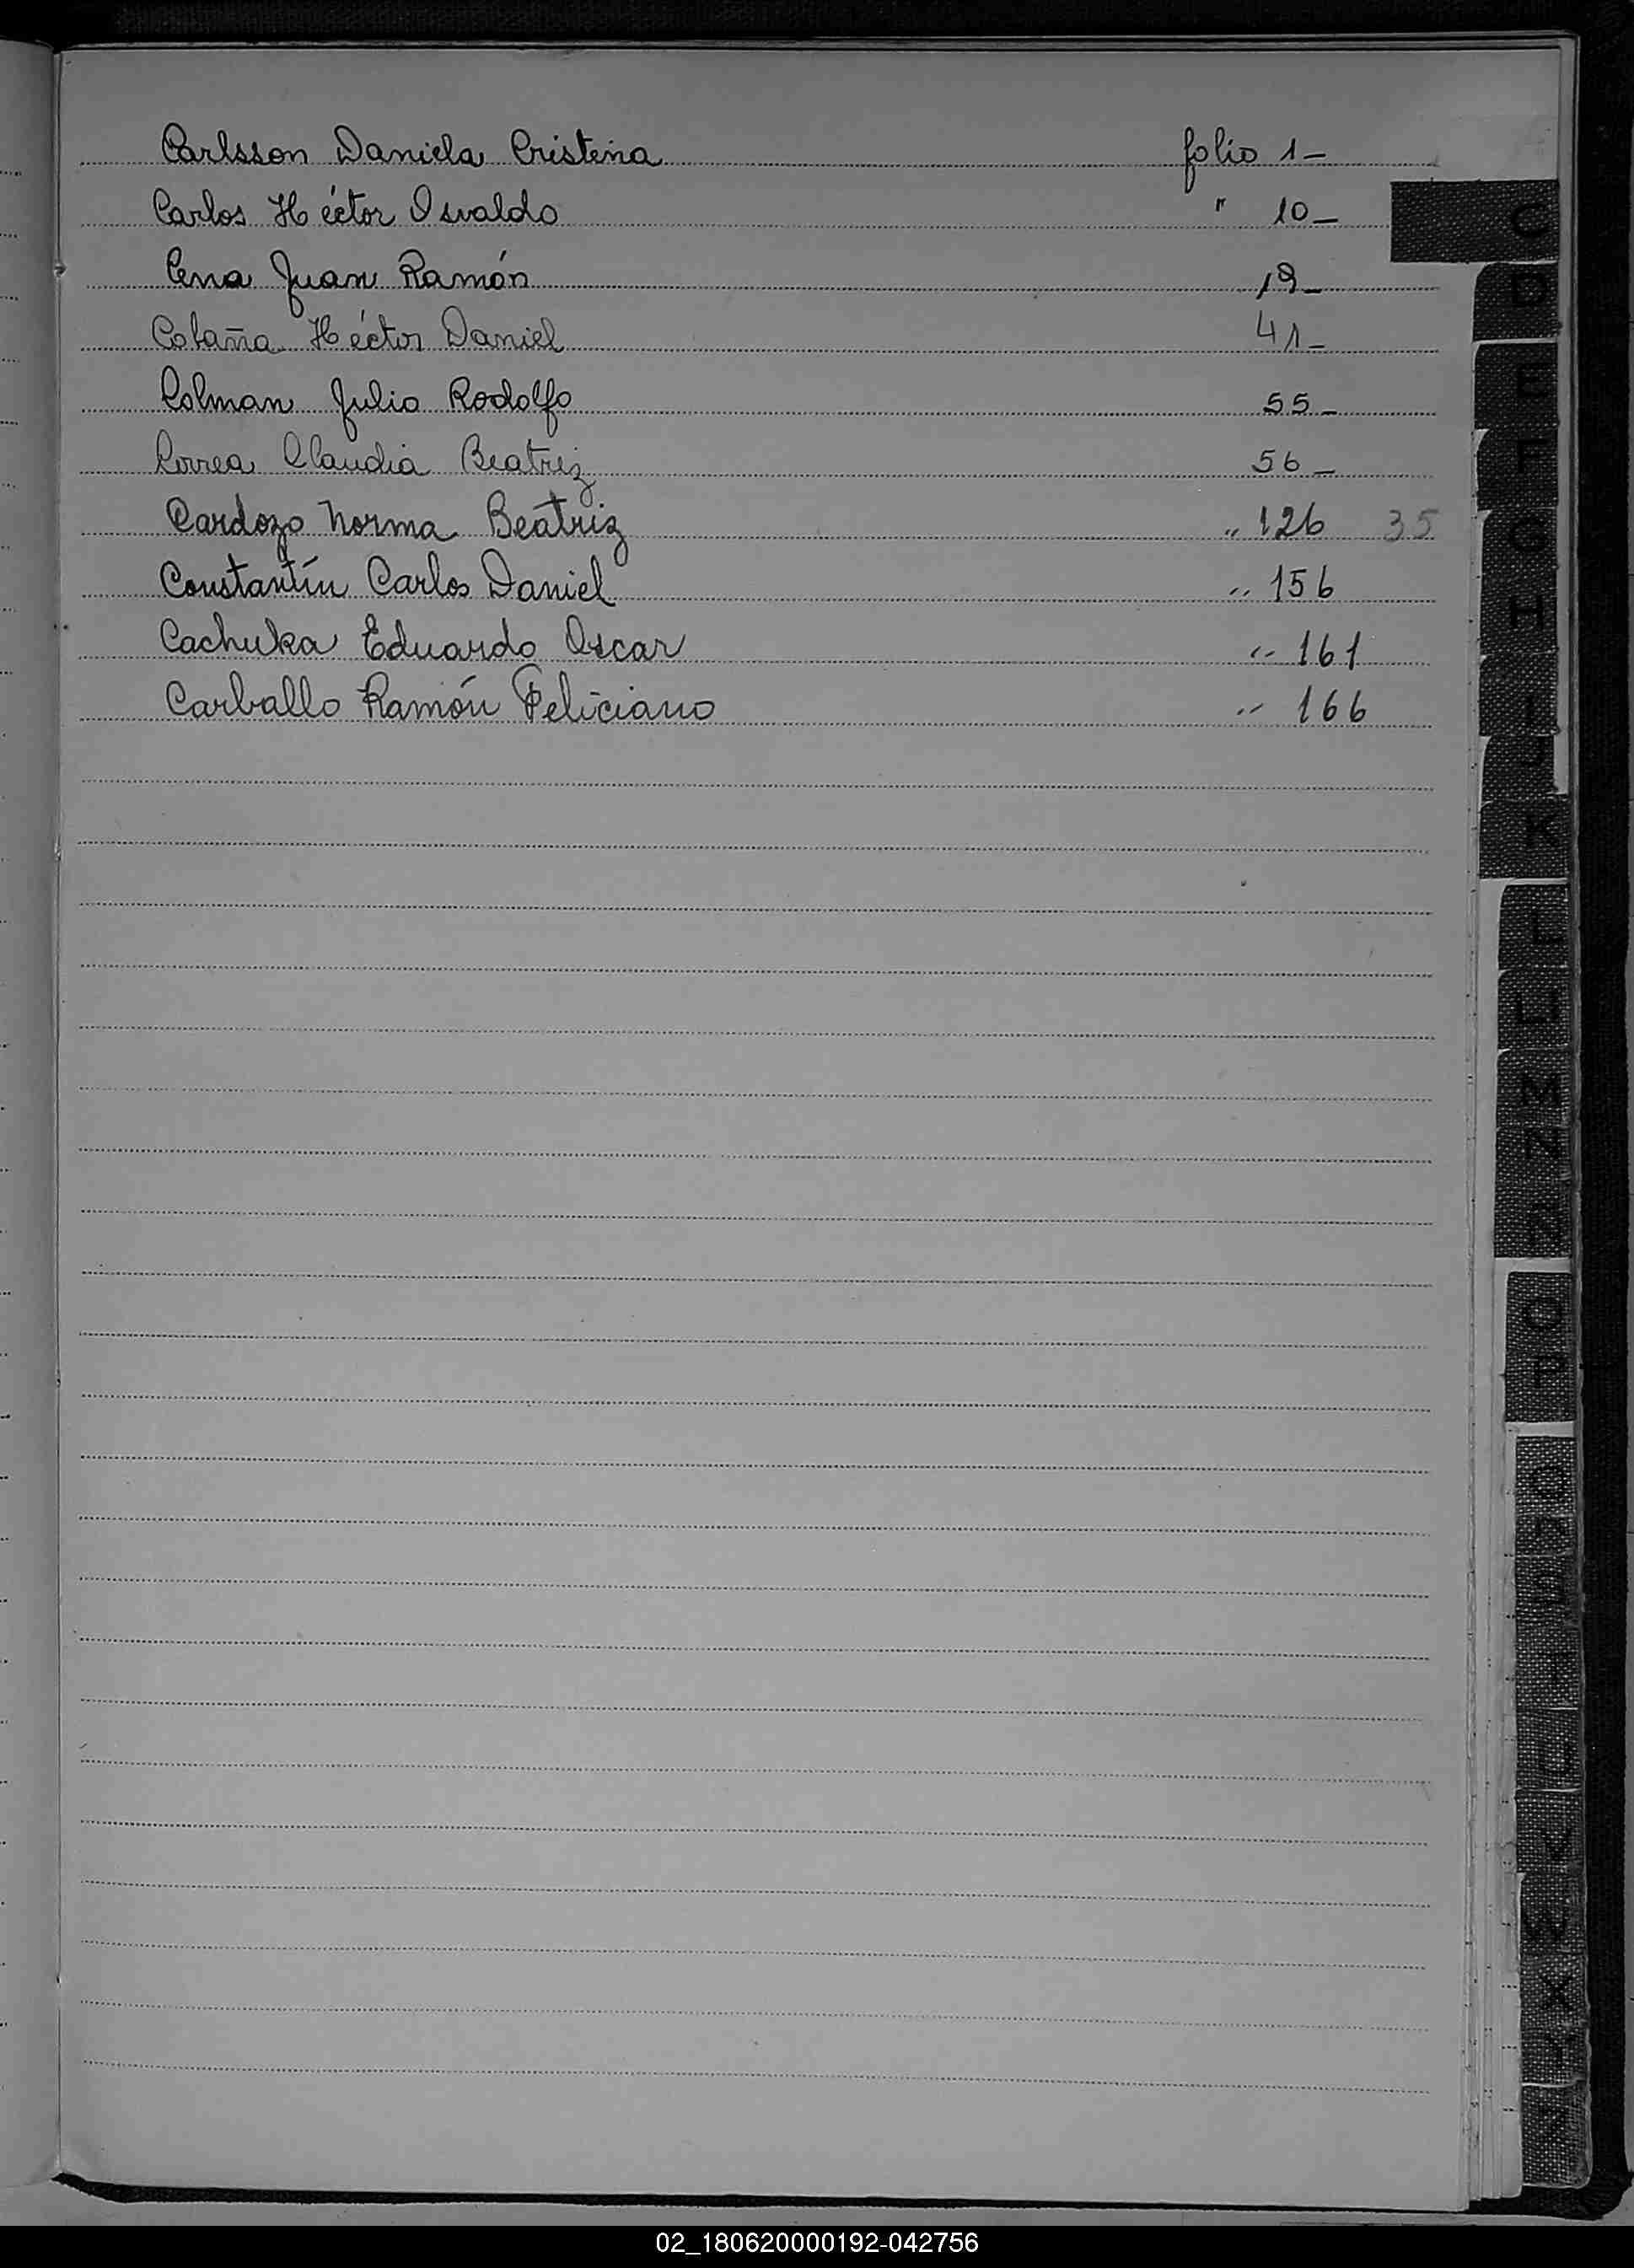 Carlsson Daniela Cristina folio 1-
Carlos Héctor Osvaldo " 10-
Cena Juan Ramón 19-
Cobaña Héctor Daniel 41-
Colman Julio Rodolfo 55-
Correa Claudia Beatriz 56-
Cardozo Norma Beatriz " 126 35
Constantín Carlos Daniel " 156
Cachuka Eduardo Oscar " 161
Carballo Ramón Feliciano " 166
C
D
E
F
G
H
I
J
K
L
LL
M
N
Ñ
O
P
Q
R
S
T
U
V
W
X
Y
Z
02_180620000192-042756